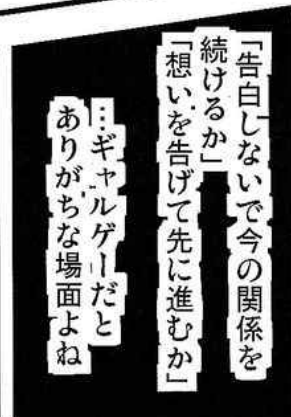 「告白しないで今の関係を
続けるか」
「想いを告げて先に進むか」
…ギャルゲーだと
ありがちな場面よね